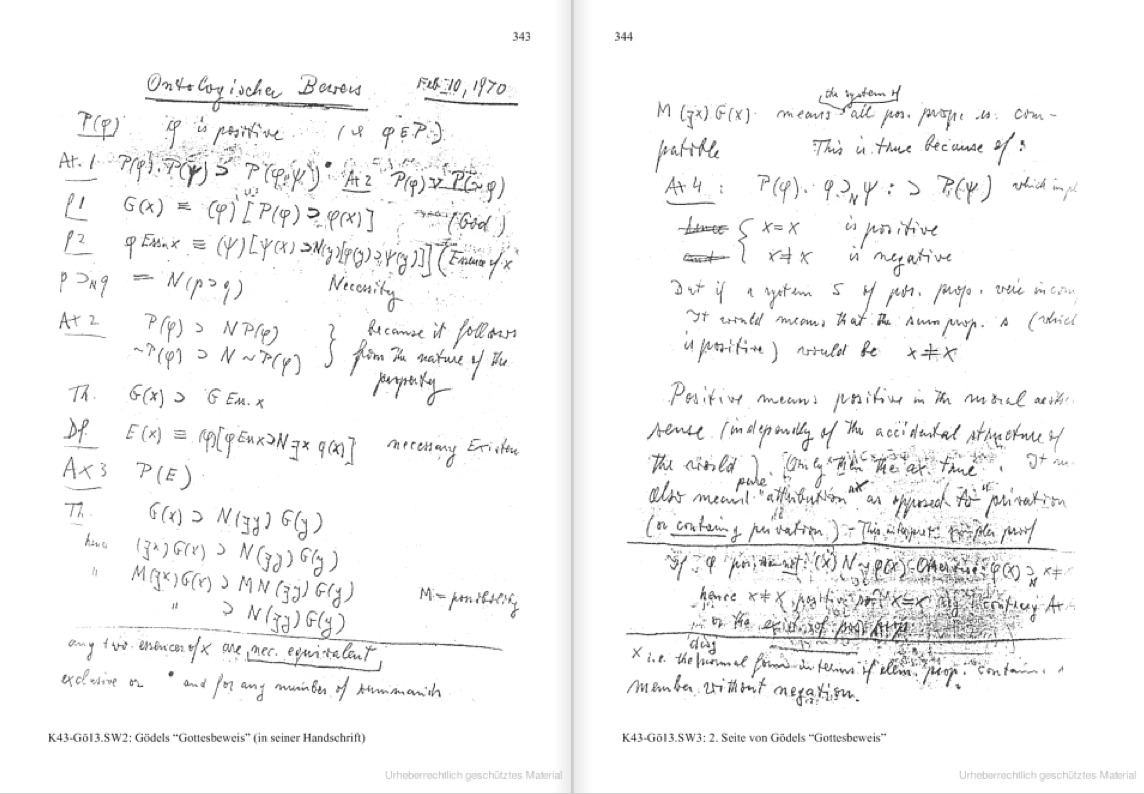 343
Ontologischer Beweis Feb 10, 1970
P(φ) φ is positive (i.e. φ ε P.)
At. 1 P(φ).P(ψ) ⊃ P(φ.ψ) • At 2 P(φ) ∨ P(~φ)
P1 G(x) ≡ (φ)[P(φ) ⊃ φ(x)] (God)
P2 φ Ess.x ≡ (ψ)[ψ(x) ⊃ N(y)[φ(y) ⊃ ψ(y)]] (Essence of x
p ⊃N q = N(p ⊃ q) Necessity
At 2 P(φ) ⊃ N P(φ) } because it follows
~P(φ) ⊃ N ~P(φ) from the nature of the
property
Th. G(x) ⊃ G Ess. x
Df. E(x) ≡ (φ)[φ Ess x ⊃ N ∃x φ(x)] necessary Existen
Ax 3 P(E)
Th. G(x) ⊃ N(∃y) G(y)
hence (∃x) G(x) ⊃ N(∃y) G(y)
" M(∃x) G(x) ⊃ M N(∃y) G(y) M = possibility
" ⊃ N(∃y) G(y)
any two essences of x are nec. equivalent
exclusive or • and for any number of summands
K43-Gö13.SW2: Gödels “Gottesbeweis” (in seiner Handschrift)
Urheberrechtlich geschütztes Material
344
the system of
M(∃x) G(x) means all pos. prope is com-
patible This is true because of :
At 4 : P(φ). φ ⊃N ψ : ⊃ P(ψ) which impl
hence { x=x is positive
and x≠x is negative
But if a system S of pos. prop. were incom
It would means that the sum prop. s (which
is positive) would be x≠x
Positive means positive in the moral aesthe
sense (indepently of the accidental structure of
the world). Only then the ax. true. It m
pure
also means "attribution" as opposed to "privation
(or containing privation.) – This interpret. simpler proof
If φ positive not: (x) N ~ φ(x). Otherwise: φ(x) ⊃N x≠
hence x≠x positive x=x contrary At
or the exist. of pos.
disj
x i.e. the normal form in terms of elem. prop. contain
member without negation.
K43-Gö13.SW3: 2. Seite von Gödels “Gottesbeweis”
Urheberrechtlich geschütztes Material